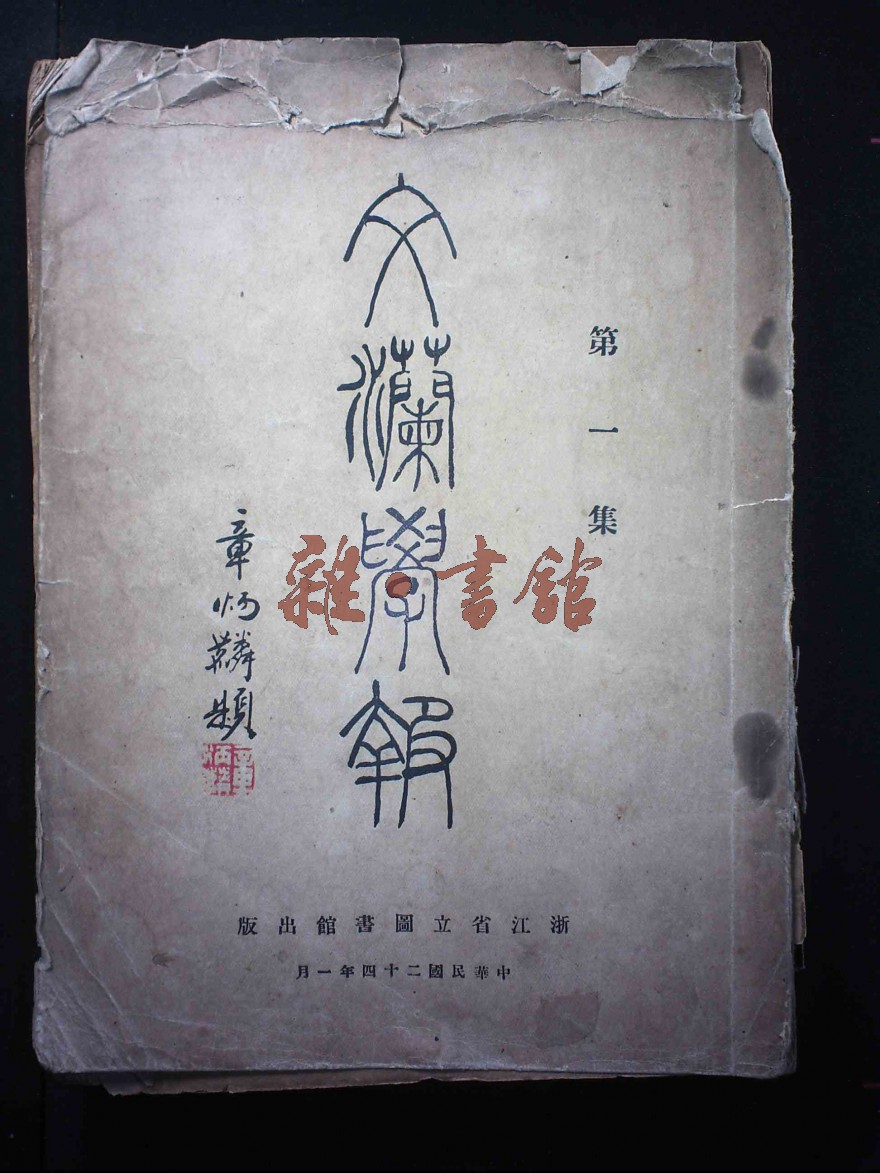 第一集
文瀾學報
章炳麟題
雜·書館
浙江省立圖書館出版
中華民國二十四年一月